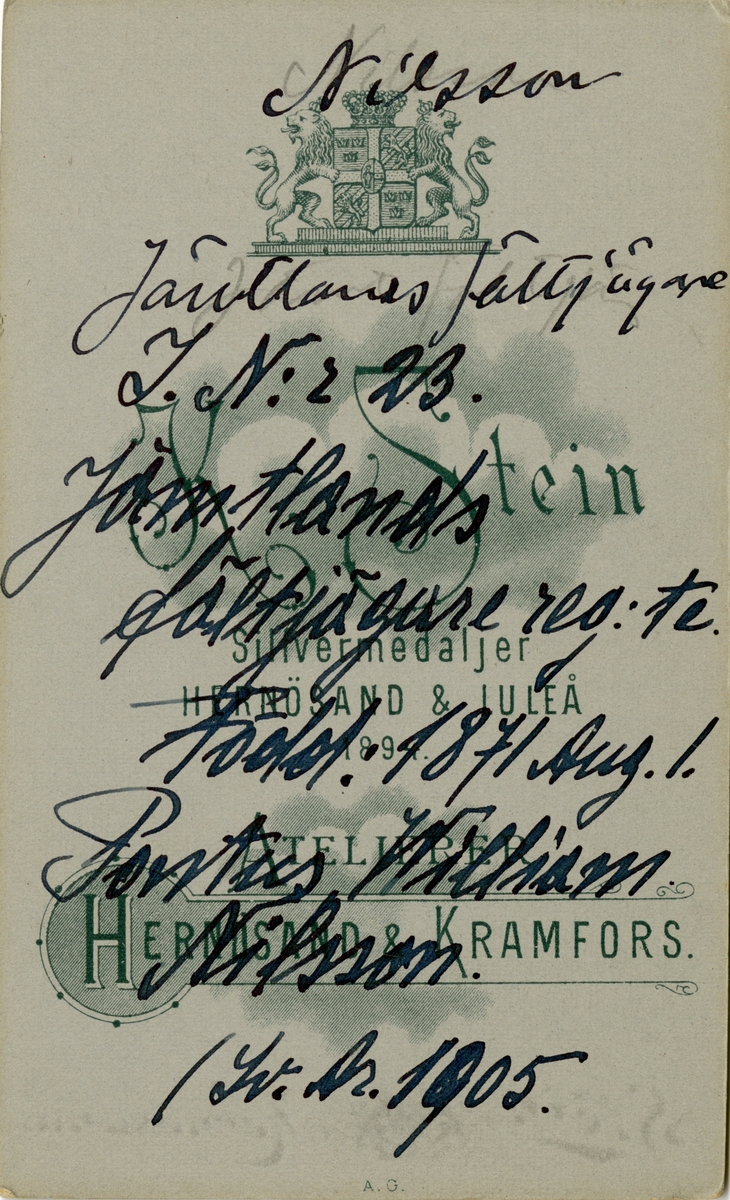 Nilsson
Jämtlands fältjägare
I. N:r 23.
K. Stein
Jämtlands
fältjägare reg:te.
Silfvermedaljer
HERNÖSAND & LULEÅ
189
Född: 1871 Aug. 1.
ATELIERER
Pontus William
HERNÖSAND & KRAMFORS.
Nilsson.
(Sv. Ar. 1905.
A. G.